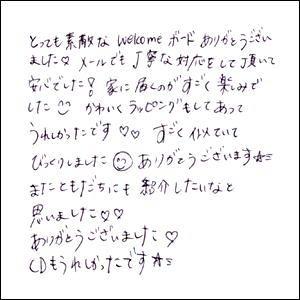 とっても素敵な welcome ボードありがとうござい
ました♡ メールでも丁寧な対応をして頂いて
安心でした! 家に届くのがすごく楽しみで
した☺ かわいくラッピングもしてあって
うれしかったです♡♡ すごく似ていて
びっくりしました☺ ありがとうございます☆ミ
またともだちにも紹介したいなと
思いました♡♡
ありがとうございました♡
CDもうれしかったです☆ミ